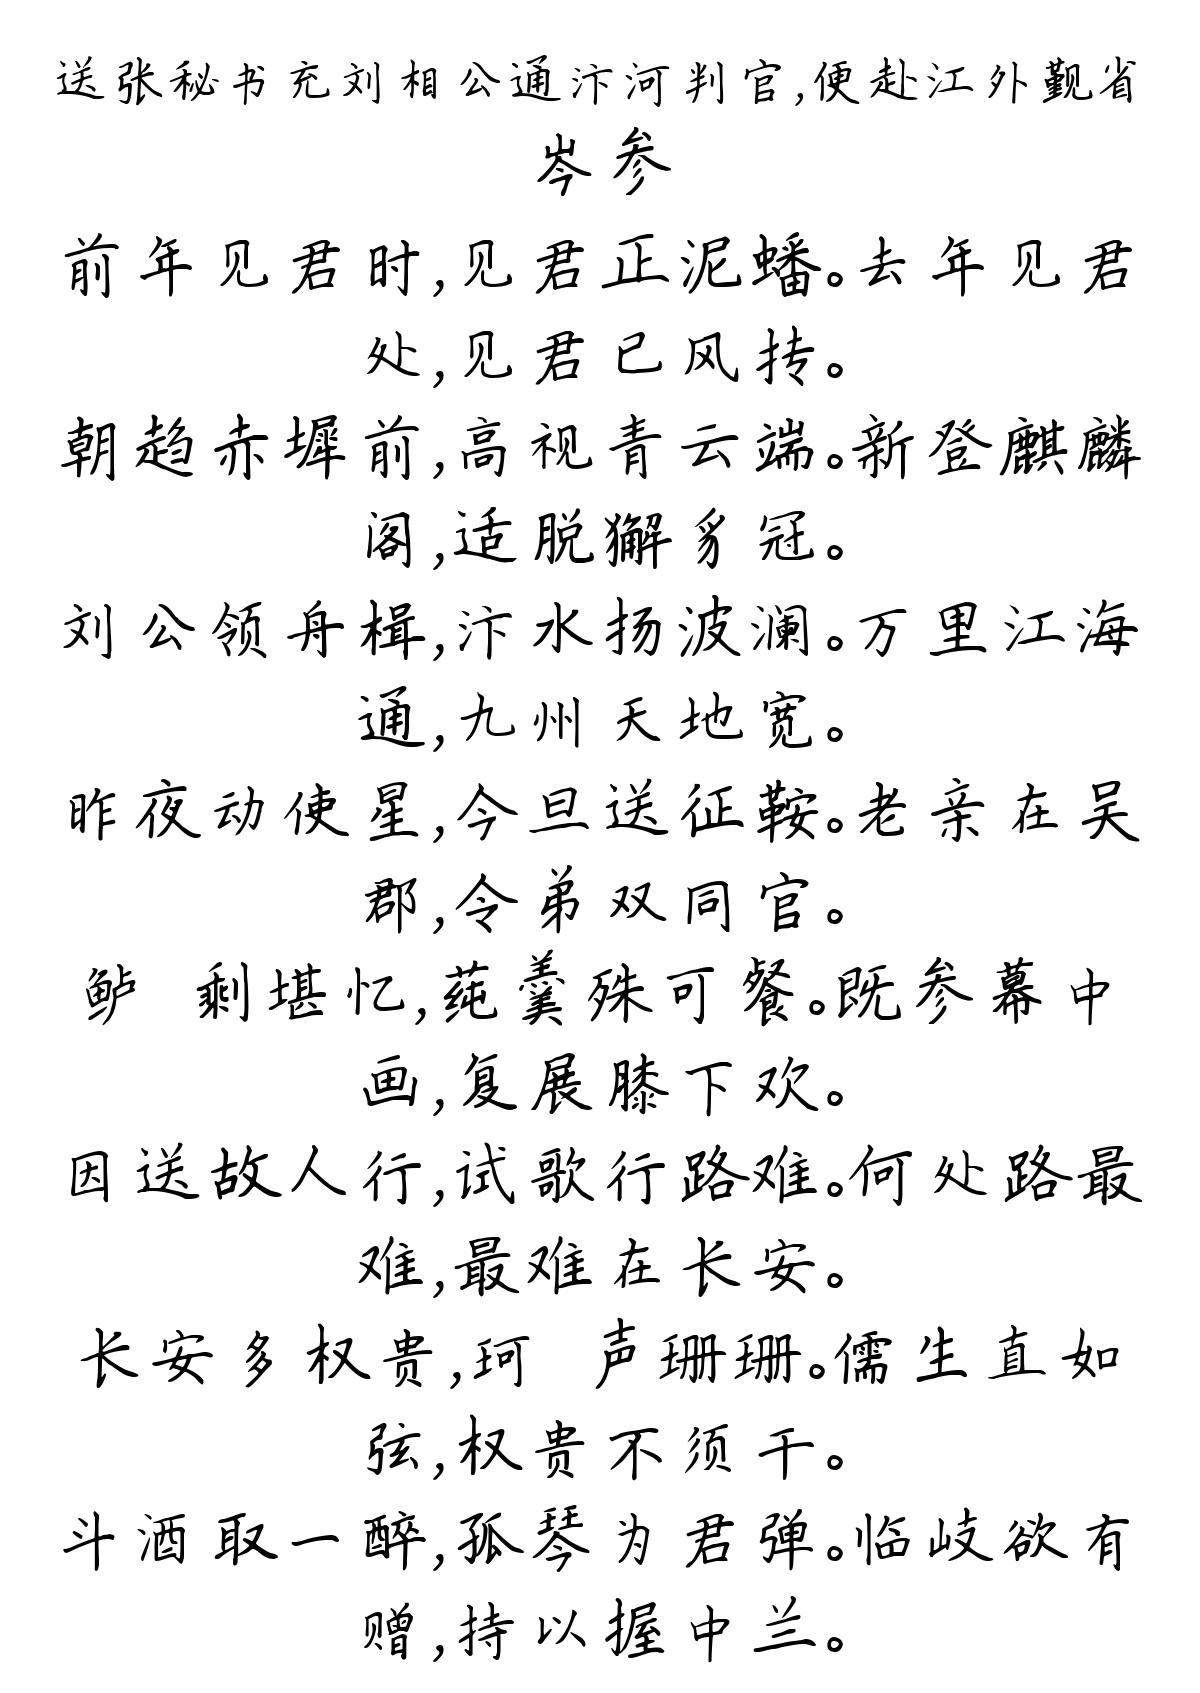 送张秘书充刘相公通汴河判官,便赴江外觐省
岑参
前年见君时,见君正泥蟠。去年见君
处,见君已风抟。
朝趋赤墀前,高视青云端。新登麒麟
阁,适脱獬豸冠。
刘公领舟楫,汴水扬波澜。万里江海
通,九州天地宽。
昨夜动使星,今旦送征鞍。老亲在吴
郡,令弟双同官。
鲈 剩堪忆,莼羹殊可餐。既参幕中
画,复展膝下欢。
因送故人行,试歌行路难。何处路最
难,最难在长安。
长安多权贵,珂 声珊珊。儒生直如
弦,权贵不须干。
斗酒取一醉,孤琴为君弹。临岐欲有
赠,持以握中兰。